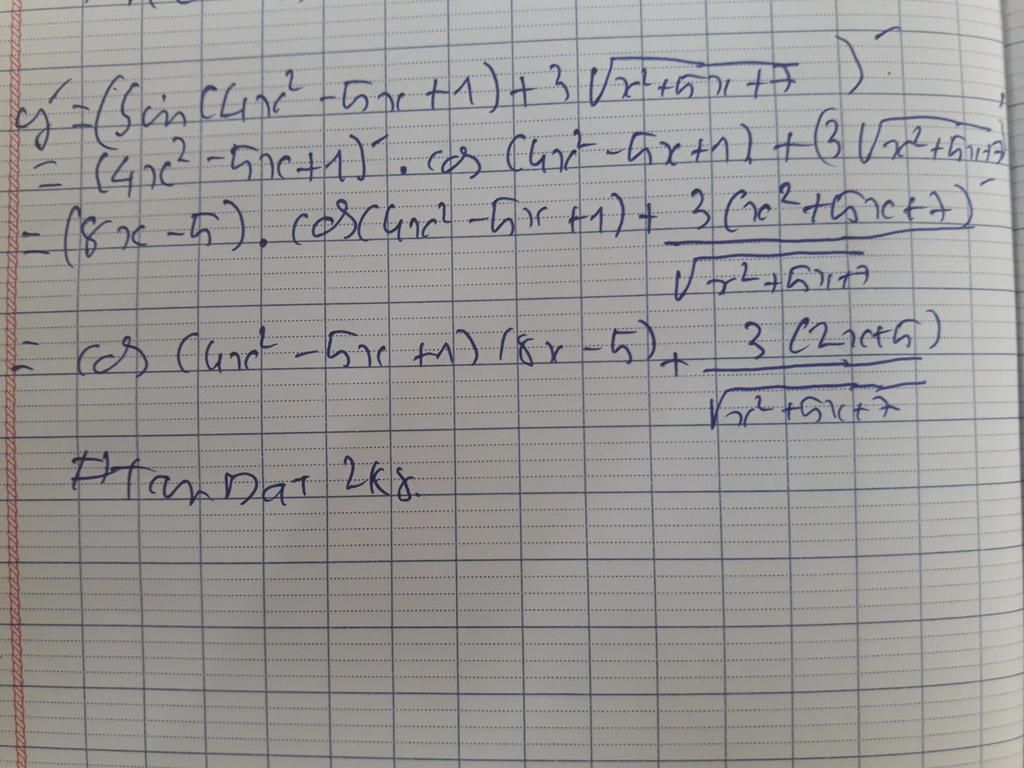 y' = (Sin(4x² - 5x + 1) + 3√(x² + 5x + 7))'
= (4x² - 5x + 1)' . cos (4x² - 5x + 1) + (3√(x² + 5x + 7))'
= (8x - 5) . cos(4x² - 5x + 1) + 3(x² + 5x + 7)' / √(x² + 5x + 7)
= cos (4x² - 5x + 1) (8x - 5) + 3(2x + 5) / √(x² + 5x + 7)
#Tan Dat 2k8.